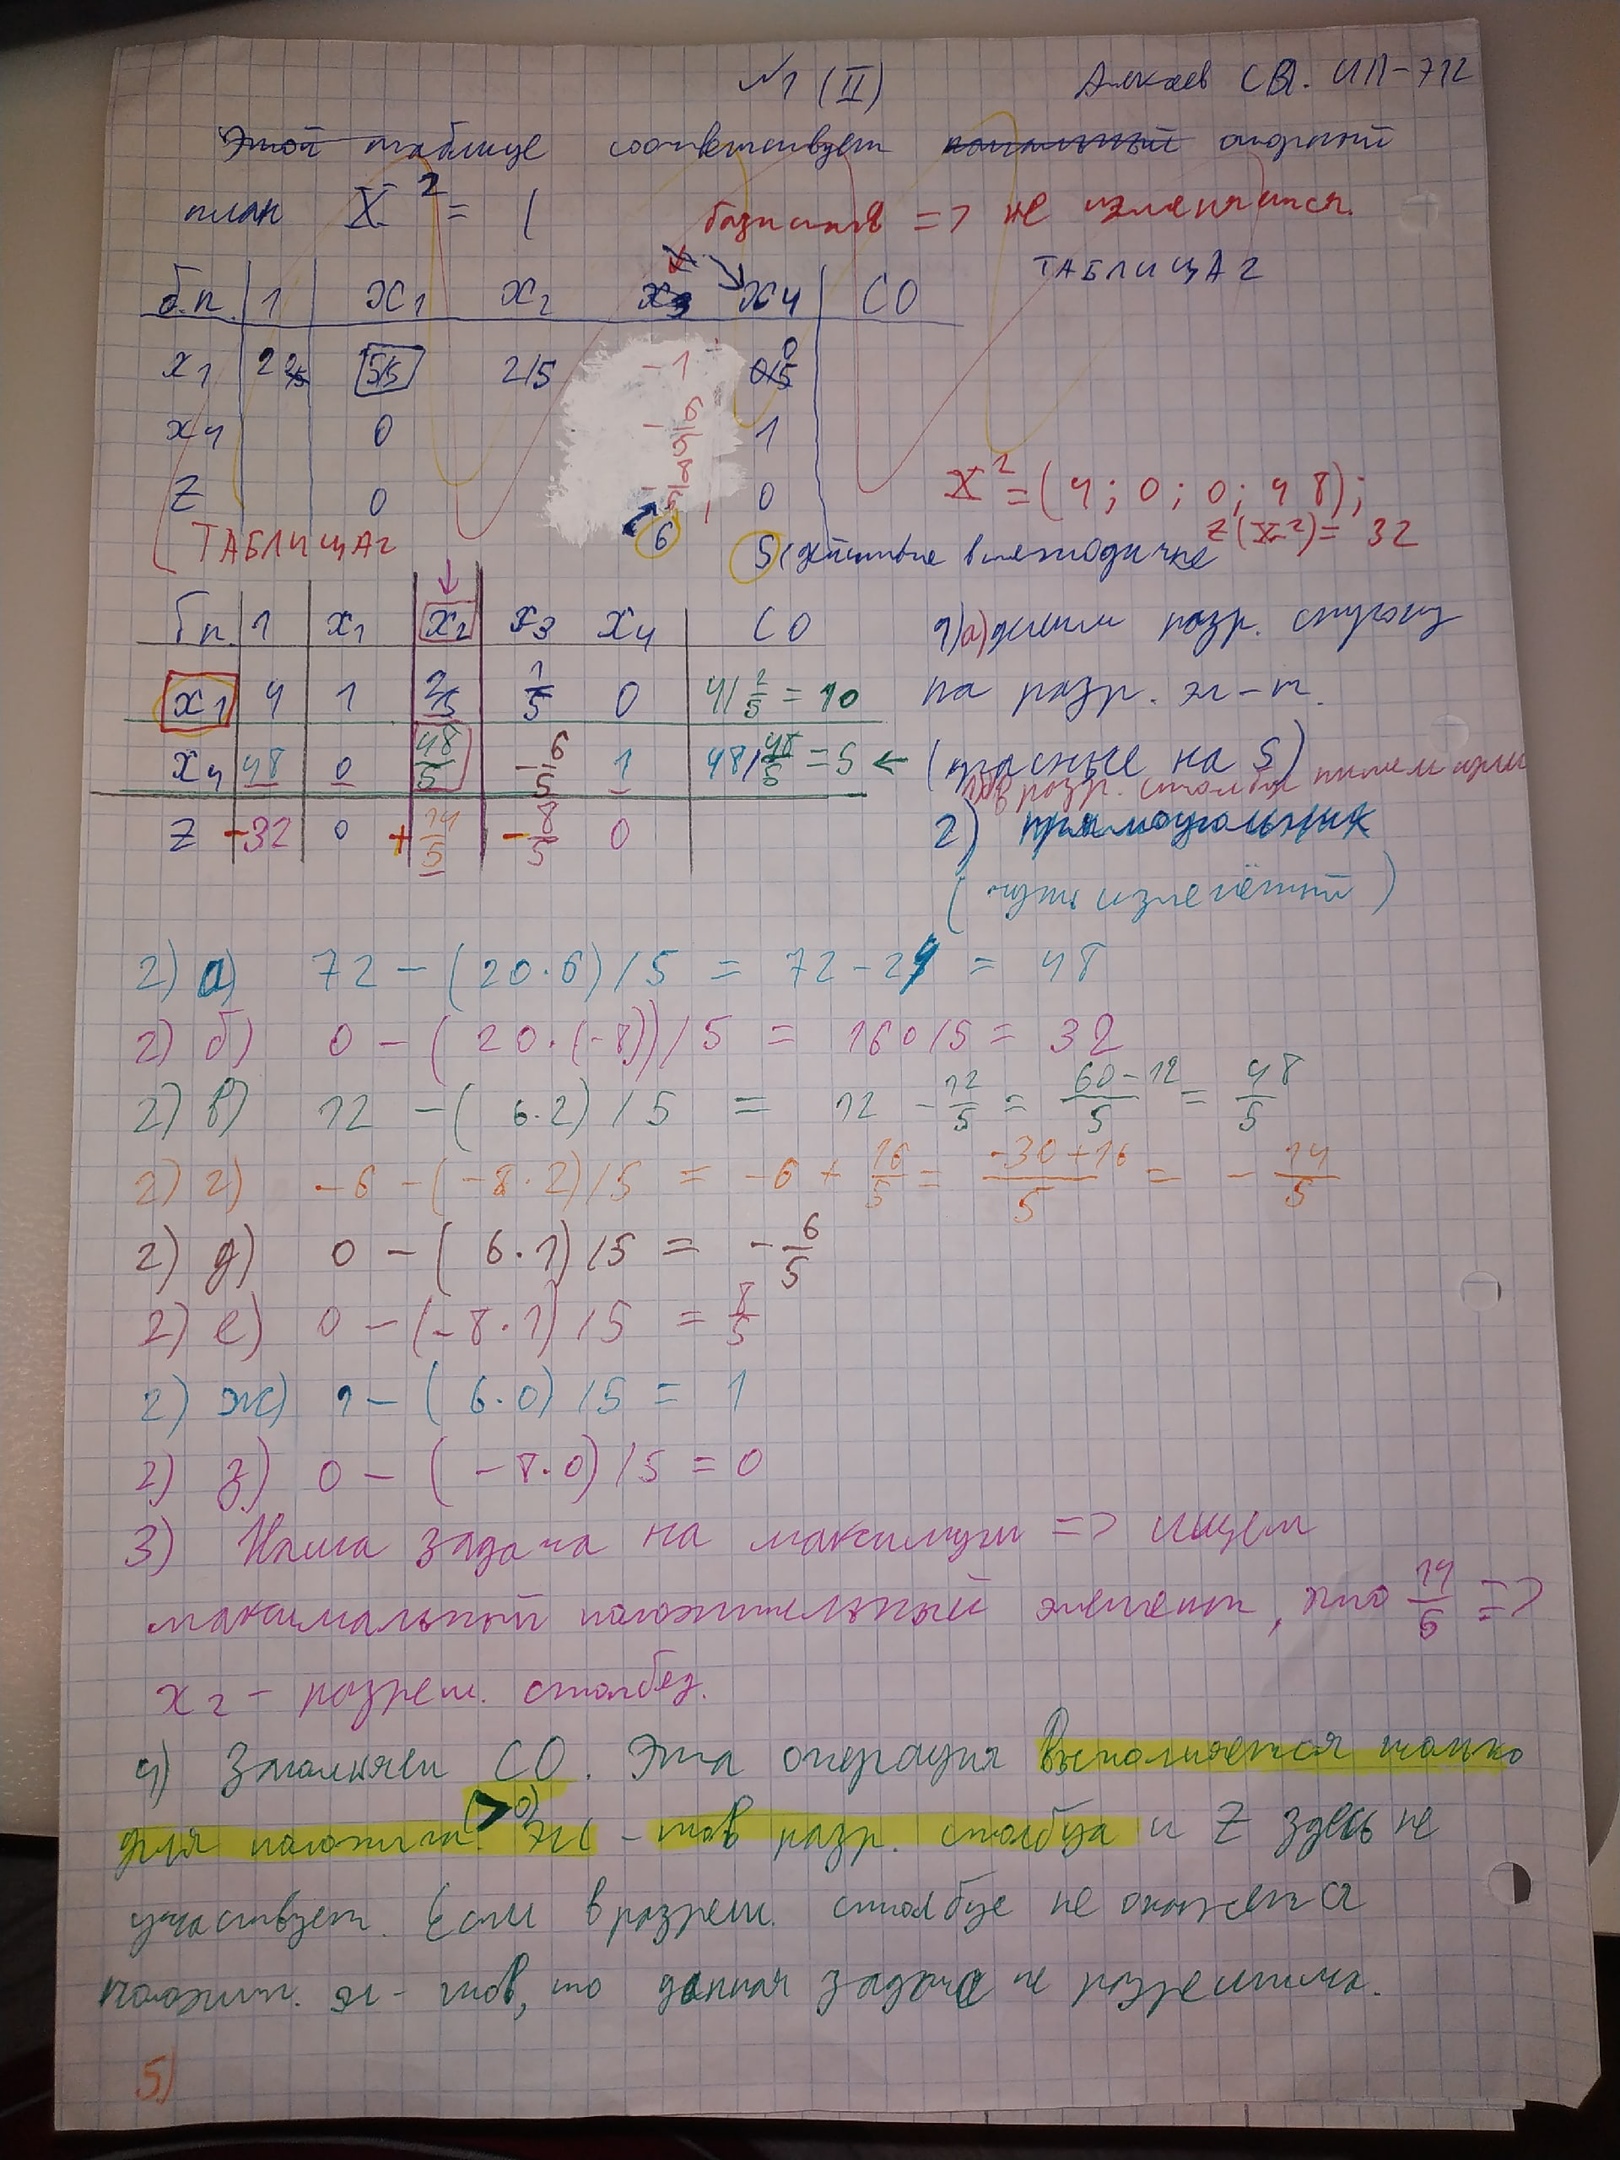 №1 (II) СВ. ИП-712
Этой таблице соответствует начальный опорный
план X² = (
базисная => не изменяется.
ТАБЛИЦА 2
б.п. 1 x₁ x₂ x₃ x₄ СО
x₁ 5/5 2/5 -1 0
x₄ 0 1
Z 0 0
X² = (4; 0; 0; 48);
Z(X²) = 32
ТАБЛИЦА2
6 5(действие в методичке
б.п. 1 x₁ x₂ x₃ x₄ СО
x₁ 4 1 2/5 1/5 0 4/ 2/5 = 10
x₄ 48 0 48/5 -6/5 1 48/ 48/5 = 5 ←
Z -32 0 + 14/5 -8/5 0
1)а)делим разр. строку
на разр. эл-т.
(красные на 5)
в разр. столбце пишем нули
2) прямоугольник
(чуть изменённый)
2) а) 72 - (20·6)/5 = 72 - 24 = 48
2) б) 0 - (20·(-8))/5 = 160/5 = 32
2) в) 12 - (6·2)/5 = 12 - 12/5 = 60-12/5 = 48/5
2) г) -6 - (-8·2)/5 = -6 + 16/5 = -30+16/5 = - 14/5
2) д) 0 - (6·1)/5 = - 6/5
2) е) 0 - (-8·1)/5 = 8/5
2) ж) 1 - (6·0)/5 = 1
2) з) 0 - (-8·0)/5 = 0
3) Наша задача на максимум => ищем
максимальный положительный элемент, это 14/5 =>
x₂ - разреш. столбец.
4) Заполняем СО. Эта операция выполняется только
для положит. (>0) эл-тов разр. столбца и Z здесь не
участвует. Если в разреш. столбце не окажется
положит. эл-тов, то данная задача не разрешима.
5)